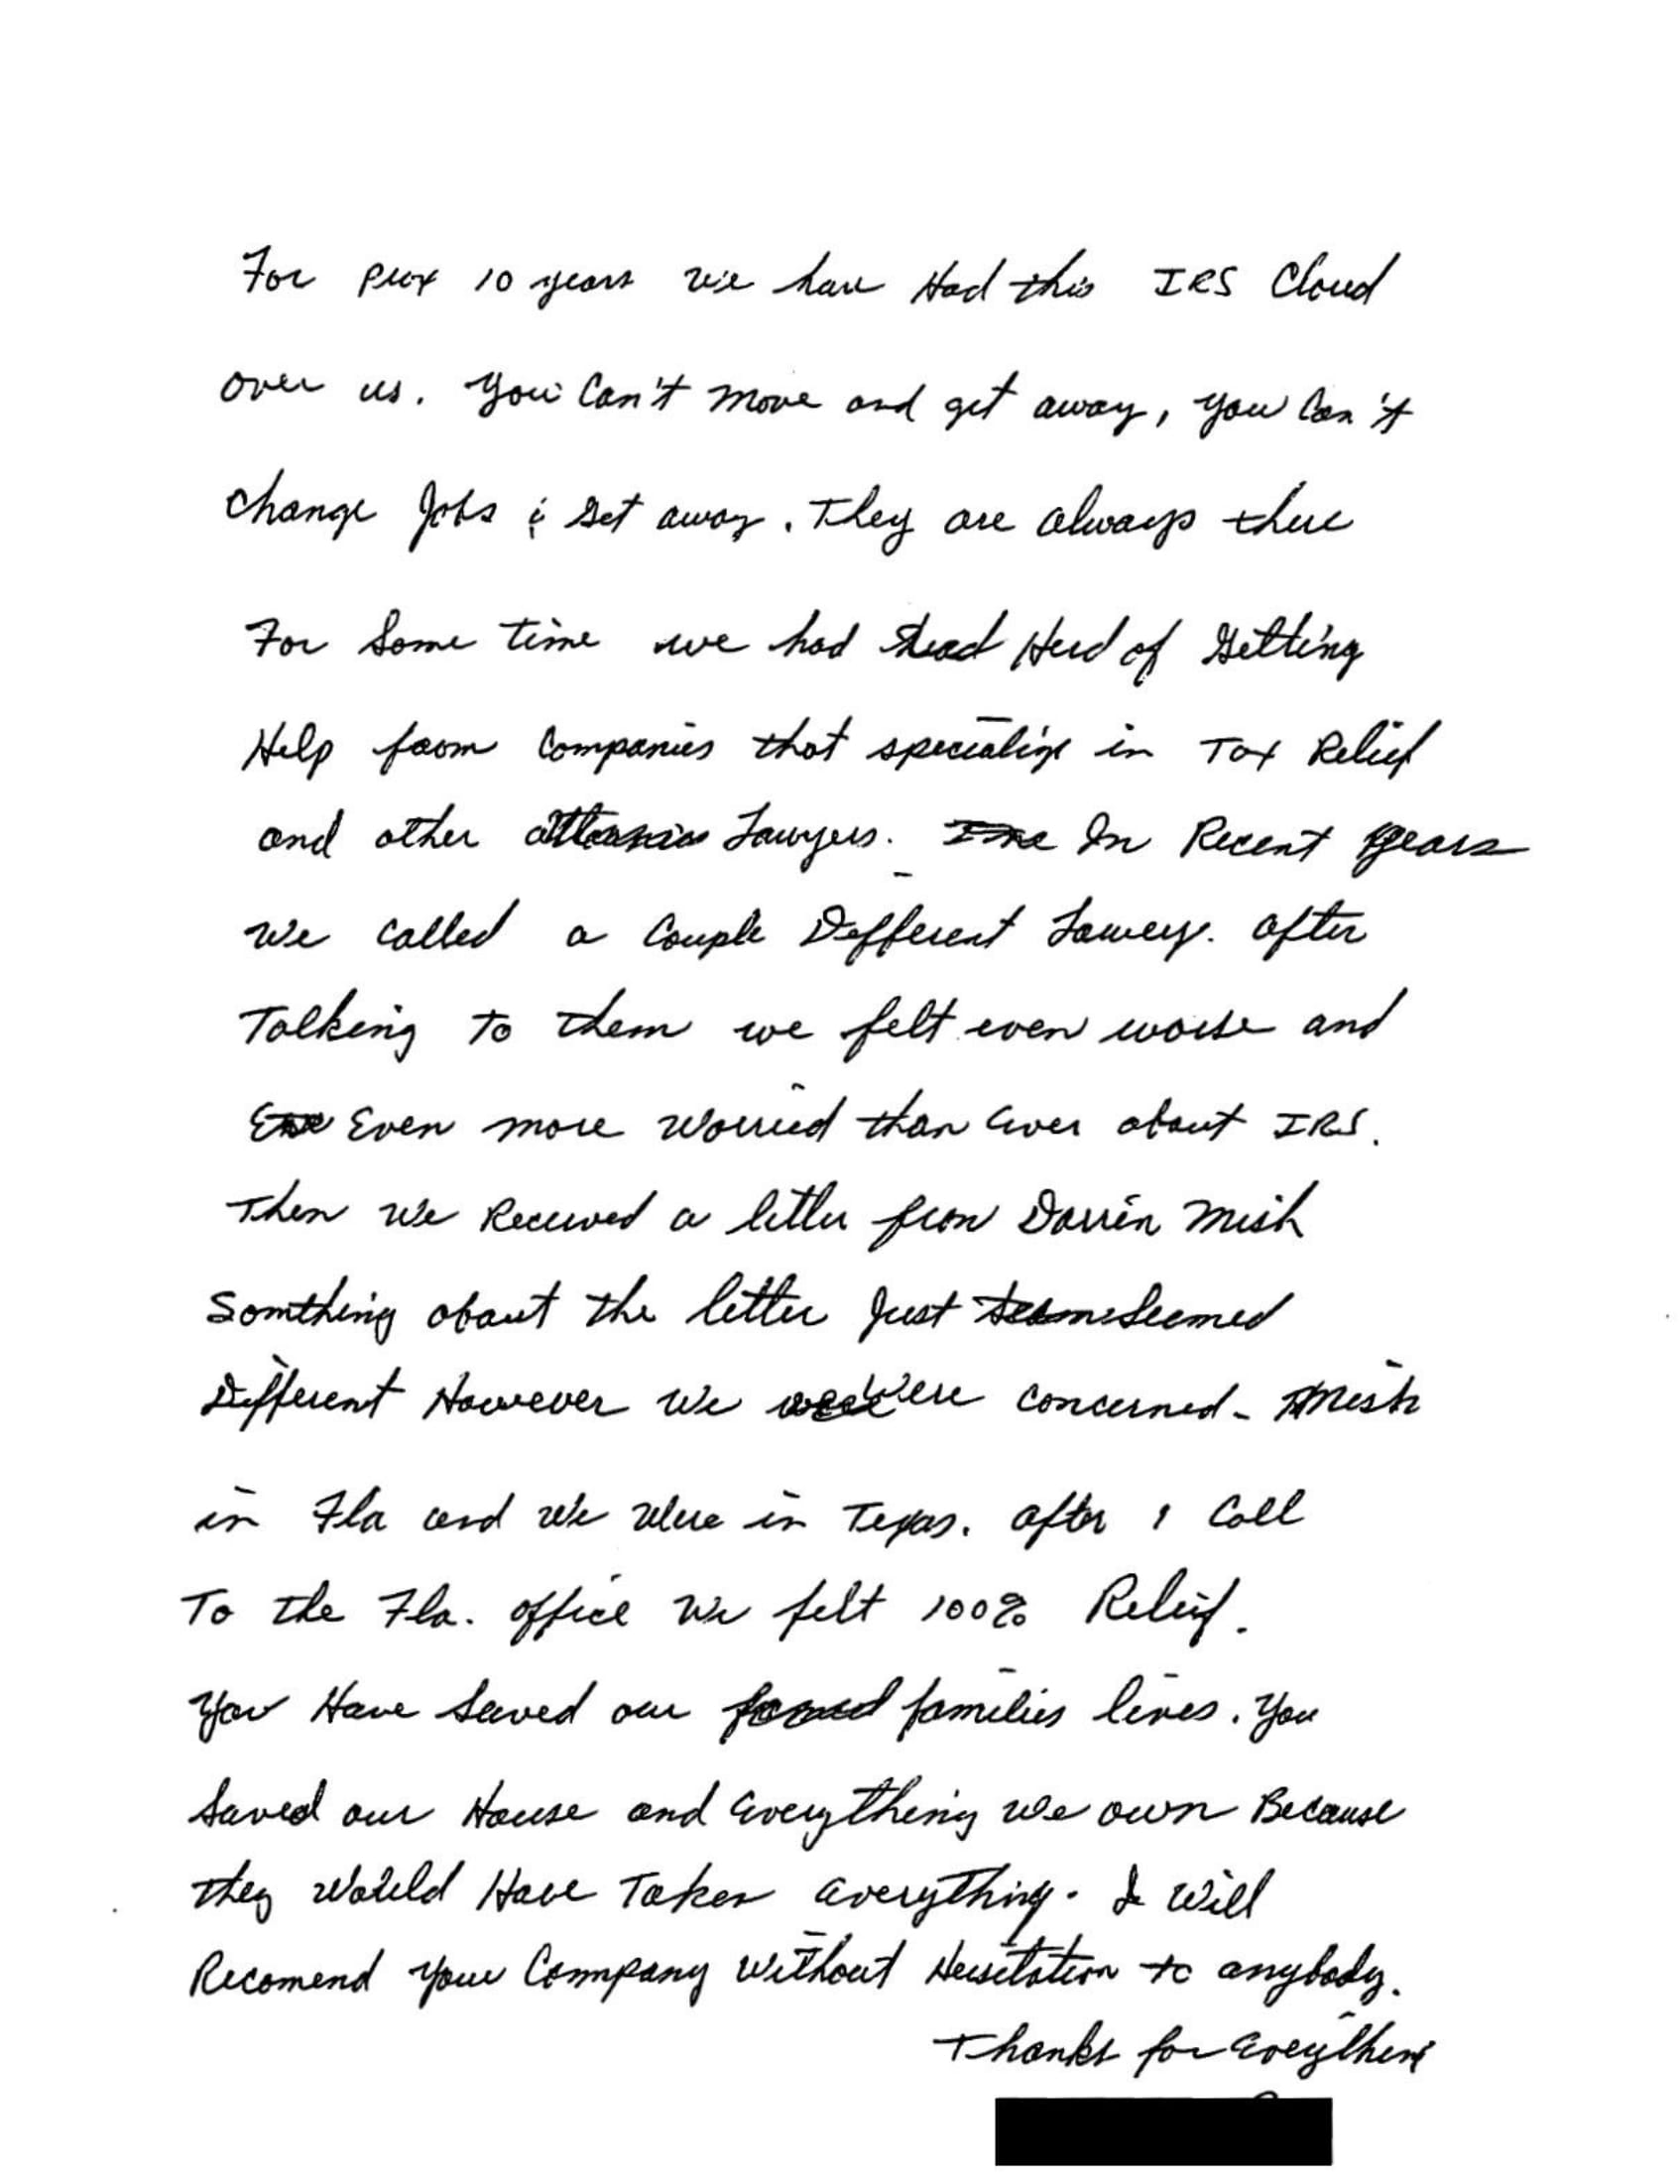 For past 10 years we have Had this IRS Cloud
over us. You Can't move and get away, you Can't
change Jobs & Get away. They are always there
For Some time we had Herd of Getting
Help from Companies that specialize in Tax Relief
and other Lawyers. In Recent years
we called a Couple Different Lawers. after
Talking to them we felt even worse and
Even more Worried than ever about IRS.
Then we Received a letter from Darrin Mish
Somthing about the letter Just Seemed
Different However we were concerned - Mish
in Fla and we were in Texas. after 1 Call
To the Fla. office we felt 100% Relief.
You Have Saved our families lives. You
Saved our House and everything we own Because
they Would Have Taken everything. I will
Recomend your Commpany without Hesitation to anybody.
Thanks for Everything